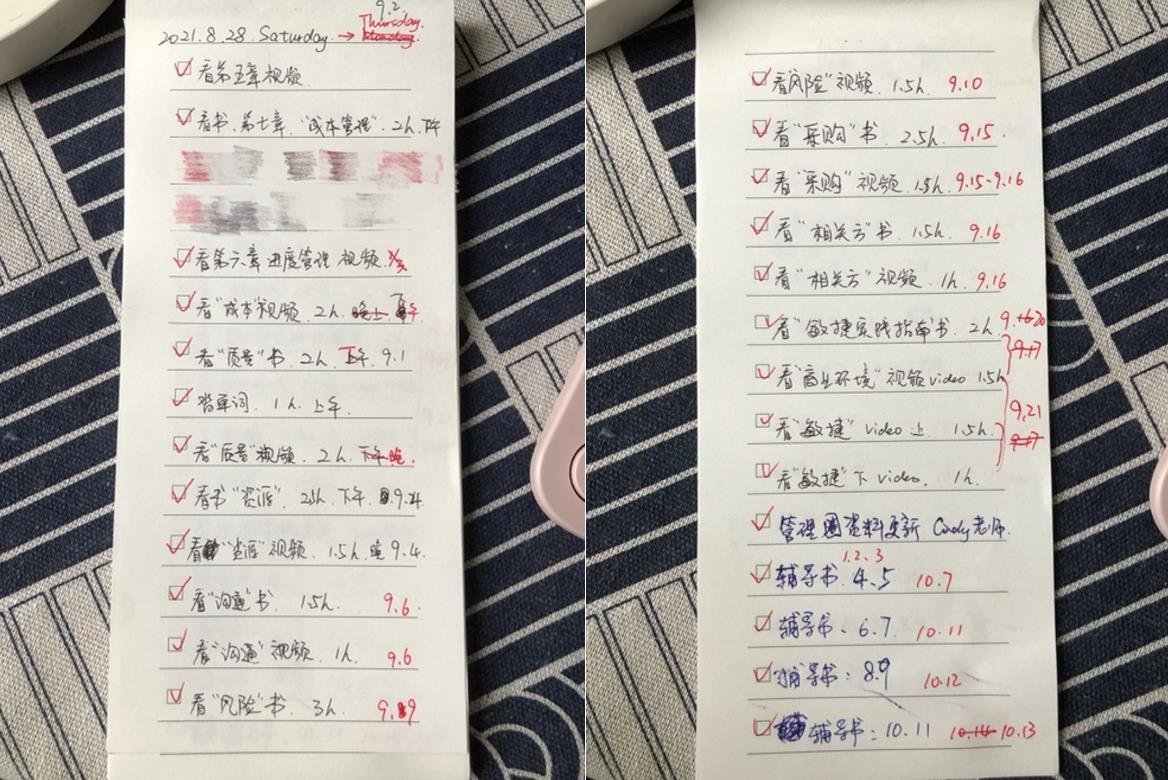 9.2
Thursday.
2021.8.28 Saturday. →
看第五章视频
看书.第七章."成本管理". 2h. 下午
看第六章进度管理 视频.
看"成本"视频. 2h.
看"质量"书. 2h. 下午. 9.1
背单词. 1h. 上午.
看"质量"视频. 2h. 晚.
看书"资源". 2.5h. 下午. 9.4
看"资源"视频. 1.5h. 晚 9.4.
看"沟通"书. 1.5h. 9.6.
看"沟通"视频. 1h. 9.6
看"风险"书. 3h. 9.9
看"风险"视频. 1.5h. 9.10
看"采购"书. 2.5h. 9.15.
看"采购"视频. 1.5h. 9.15-9.16
看"相关方"书. 1.5h. 9.16
看"相关方"视频. 1h. 9.16
看"敏捷实践指南"书. 2h. 9.20
9.17
看"商业环境"视频video 1.5h
9.21
看"敏捷" video 上. 1.5h.
9.17
看"敏捷"下 video. 1h.
管理圈资料更新 Cindy老师.
1.2.3
辅导书. 4.5 10.7
辅导书: 6.7. 10.11
辅导书: 8.9 10.12
辅导书: 10.11 10.14 10.13